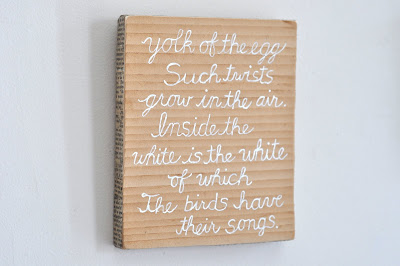 yolk of the egg
Such twists
grow in the air.
Inside the
white is the white
of which
The birds have
their songs.